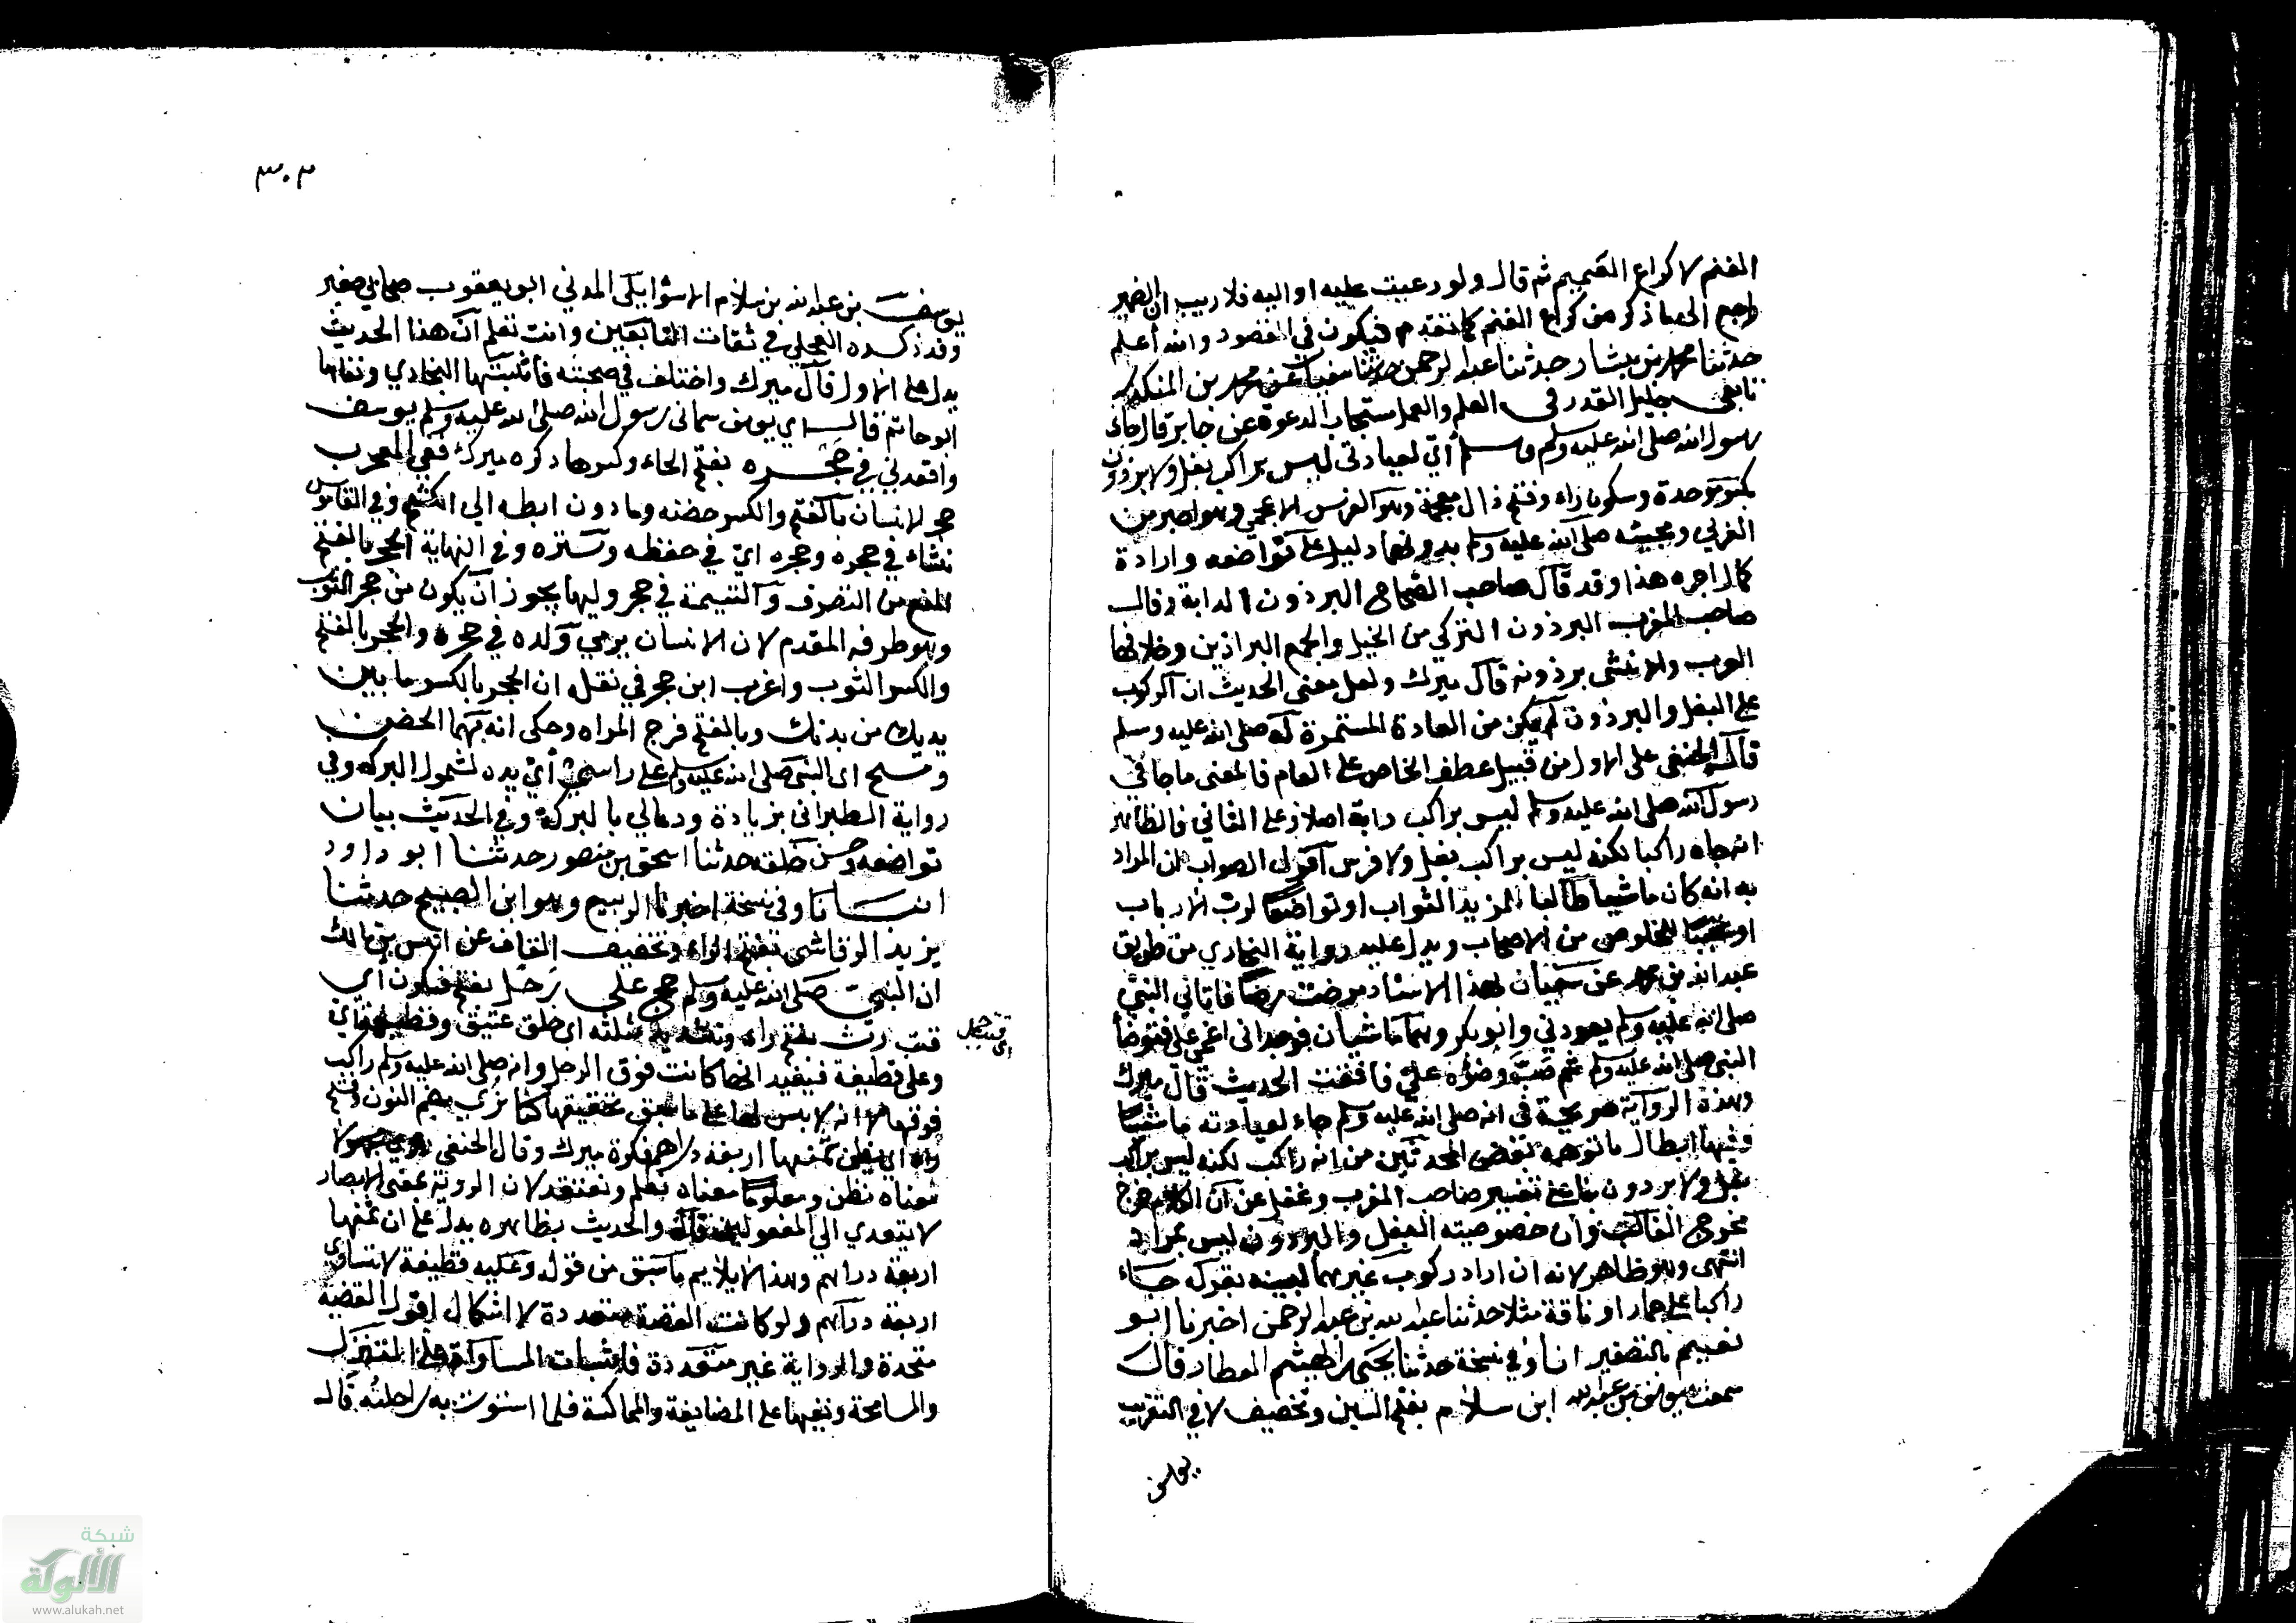 الغنم لا كراع الغميم ثم قال ولو دعيت عليه او اليه فلا ريب ان الضمير
راجع الى ما ذكر من كراع الغنم كما تقدم فيكون في المقصود والله أعلم
حدثنا محمد بن بشار حدثنا عبد الرحمن حدثنا سفيان عن محمد بن المنكدر
تابعي جليل القدر في العلم والعمل مستجاب الدعوة عن جابر قال جاءني
رسول الله صلى الله عليه وسلم أي لعيادتي ليس براكب بغل ولا برذون
بكسر موحدة وسكون راء وفتح ذال معجمة وهو الفرس الاعجمي وهو اصبر من
العربي ومجيئه صلى الله عليه وسلم بدونهما دليل على تواضعه وارادة
كمال اجره هذا وقد قال صاحب الصحاح البرذون الدابة وقال
صاحب المغرب البرذون التركي من الخيل والجمع البراذين وخلافها
العرب والانثى برذونة قال ميرك ولعل معنى الحديث ان الركوب
على البغل والبرذون لم يكن من العادة المستمرة له صلى الله عليه وسلم
قال الحنفي على الاول من قبيل عطف الخاص على العام فالمعنى ما جاءني
رسول الله صلى الله عليه وسلم ليس براكب دابة اصلا وعلى الثاني فالظاهر
انه جاء راكبا لكنه ليس براكب بغل ولا فرس أقول الصواب ان المراد
به انه كان ماشيا طالبا لمزيد الثواب او تواضعا لرب الارباب
او للخلوص من الاصحاب ويدل عليه رواية البخاري من طريق
عبد الله بن محمد عن سفيان بهذا الاسناد مرضت مرضا فاتاني النبي
صلى الله عليه وسلم يعودني وابو بكر وهما ماشيان فوجداني اغمي علي فتوضأ
النبي صلى الله عليه وسلم ثم صب وضوءه علي فافقت الحديث قال ميرك
وهذه الرواية صريحة في انه صلى الله عليه وسلم جاء لعيادته ماشيا
وفيها ابطال ما توهمه بعض المحدثين من انه راكب لكنه ليس براكب
بغل ولا برذون بناء على تفسير صاحب المغرب وغفل عن ان الكلام خرج
مخرج الغالب وان خصوصية البغل والبرذون ليس بمراد
انتهى وهو ظاهر لانه ان اراد ركوب غيرهما لبينه بقوله جاء
راكبا على حمار او ناقة مثلا حدثنا عبد الله بن عبد الرحمن اخبرنا ابو
نعيم بالتصغير انا وفي نسخة حدثنا يحيى بن ابي الهيثم العطار قال
سمعت يوسف بن عبد الله ابن سلام بفتح السين وتخفيف لا في التقريب
يوسف
٣٠٣
يوسف بن عبد الله بن سلام الاسرائيلي المدني ابو يعقوب صحابي صغير
وقد ذكره العجلي في ثقات التابعين وانت تعلم ان هذا الحديث
يدل على الاول قال ميرك واختلف في صحبته فاثبتها البخاري ونفاها
ابو حاتم قال اي يوسف سماني رسول الله صلى الله عليه وسلم يوسف
واقعدني في حجره بفتح الحاء وكسرها ذكره ميرك ففي المغرب
حجر الانسان بالفتح والكسر حضنه وما دون ابطه الى الكشح وفي القاموس
نشاء في حجره وحجره اي في حفظه وستره وفي النهاية الحجر بالفتح
المنع من التصرف واليتيمة في حجر وليها يجوز ان يكون من حجر الثوب
وهو طرفه المقدم لان الانسان يربي ولده في حجره والحجر بالفتح
والكسر الثوب واغرب ابن حجر في نقل ان الحجر بالكسر ما بين
يديك من بدنك وبالفتح فرج المراه وحكى انه بهما الحضن
ومسح اي النبي صلى الله عليه وسلم على راسي أي يده لشمول البركة وفي
رواية الطبراني بزيادة ودعا لي بالبركة وفي الحديث بيان
تواضعه وحسن خلقه حدثنا اسحق بن منصور حدثنا ابو داود
انبانا وفي نسخة اخبرنا الربيع وهو ابن الصبيح حدثنا
يزيد الرقاشي بفتح الراء وتخفيف القاف عن انس بن مالك
ان النبي صلى الله عليه وسلم حج على رحل بفتح فسكون اي
قتب رث بفتح راء وتشديد مثلثه اي خلق عتيق وقطيفة اي
وعلى قطيفة فيفيد انها كانت فوق الرحل وانه صلى الله عليه وسلم راكب
فوقها لا انه لابس لها على ما سبق تحقيقها كنا نرى بضم النون وفتح
راء اي نظن ثمنها اربعة دراهم ذكره ميرك وقال الحنفي روي مجهولا
معناه نظن ومعلوما معناه نعلم ونعتقد لان الروية بمعنى الابصار
لا يتعدى الى المفعولين قال والحديث بظاهره يدل على ان ثمنها
اربعة دراهم وهذا لا يلايم ما سبق من قوله وعليه قطيفة لا تساوي
اربعة دراهم ولو كانت القصة متعددة لا اشكال اقول القضية
متحدة والرواية غير متعددة فاثبات المساواة على التنزل
والمسامحة ونفيها على المضايقة والمماكسة فلما استوت به راحلته قال
شبكة
الألوكة
www.alukah.net